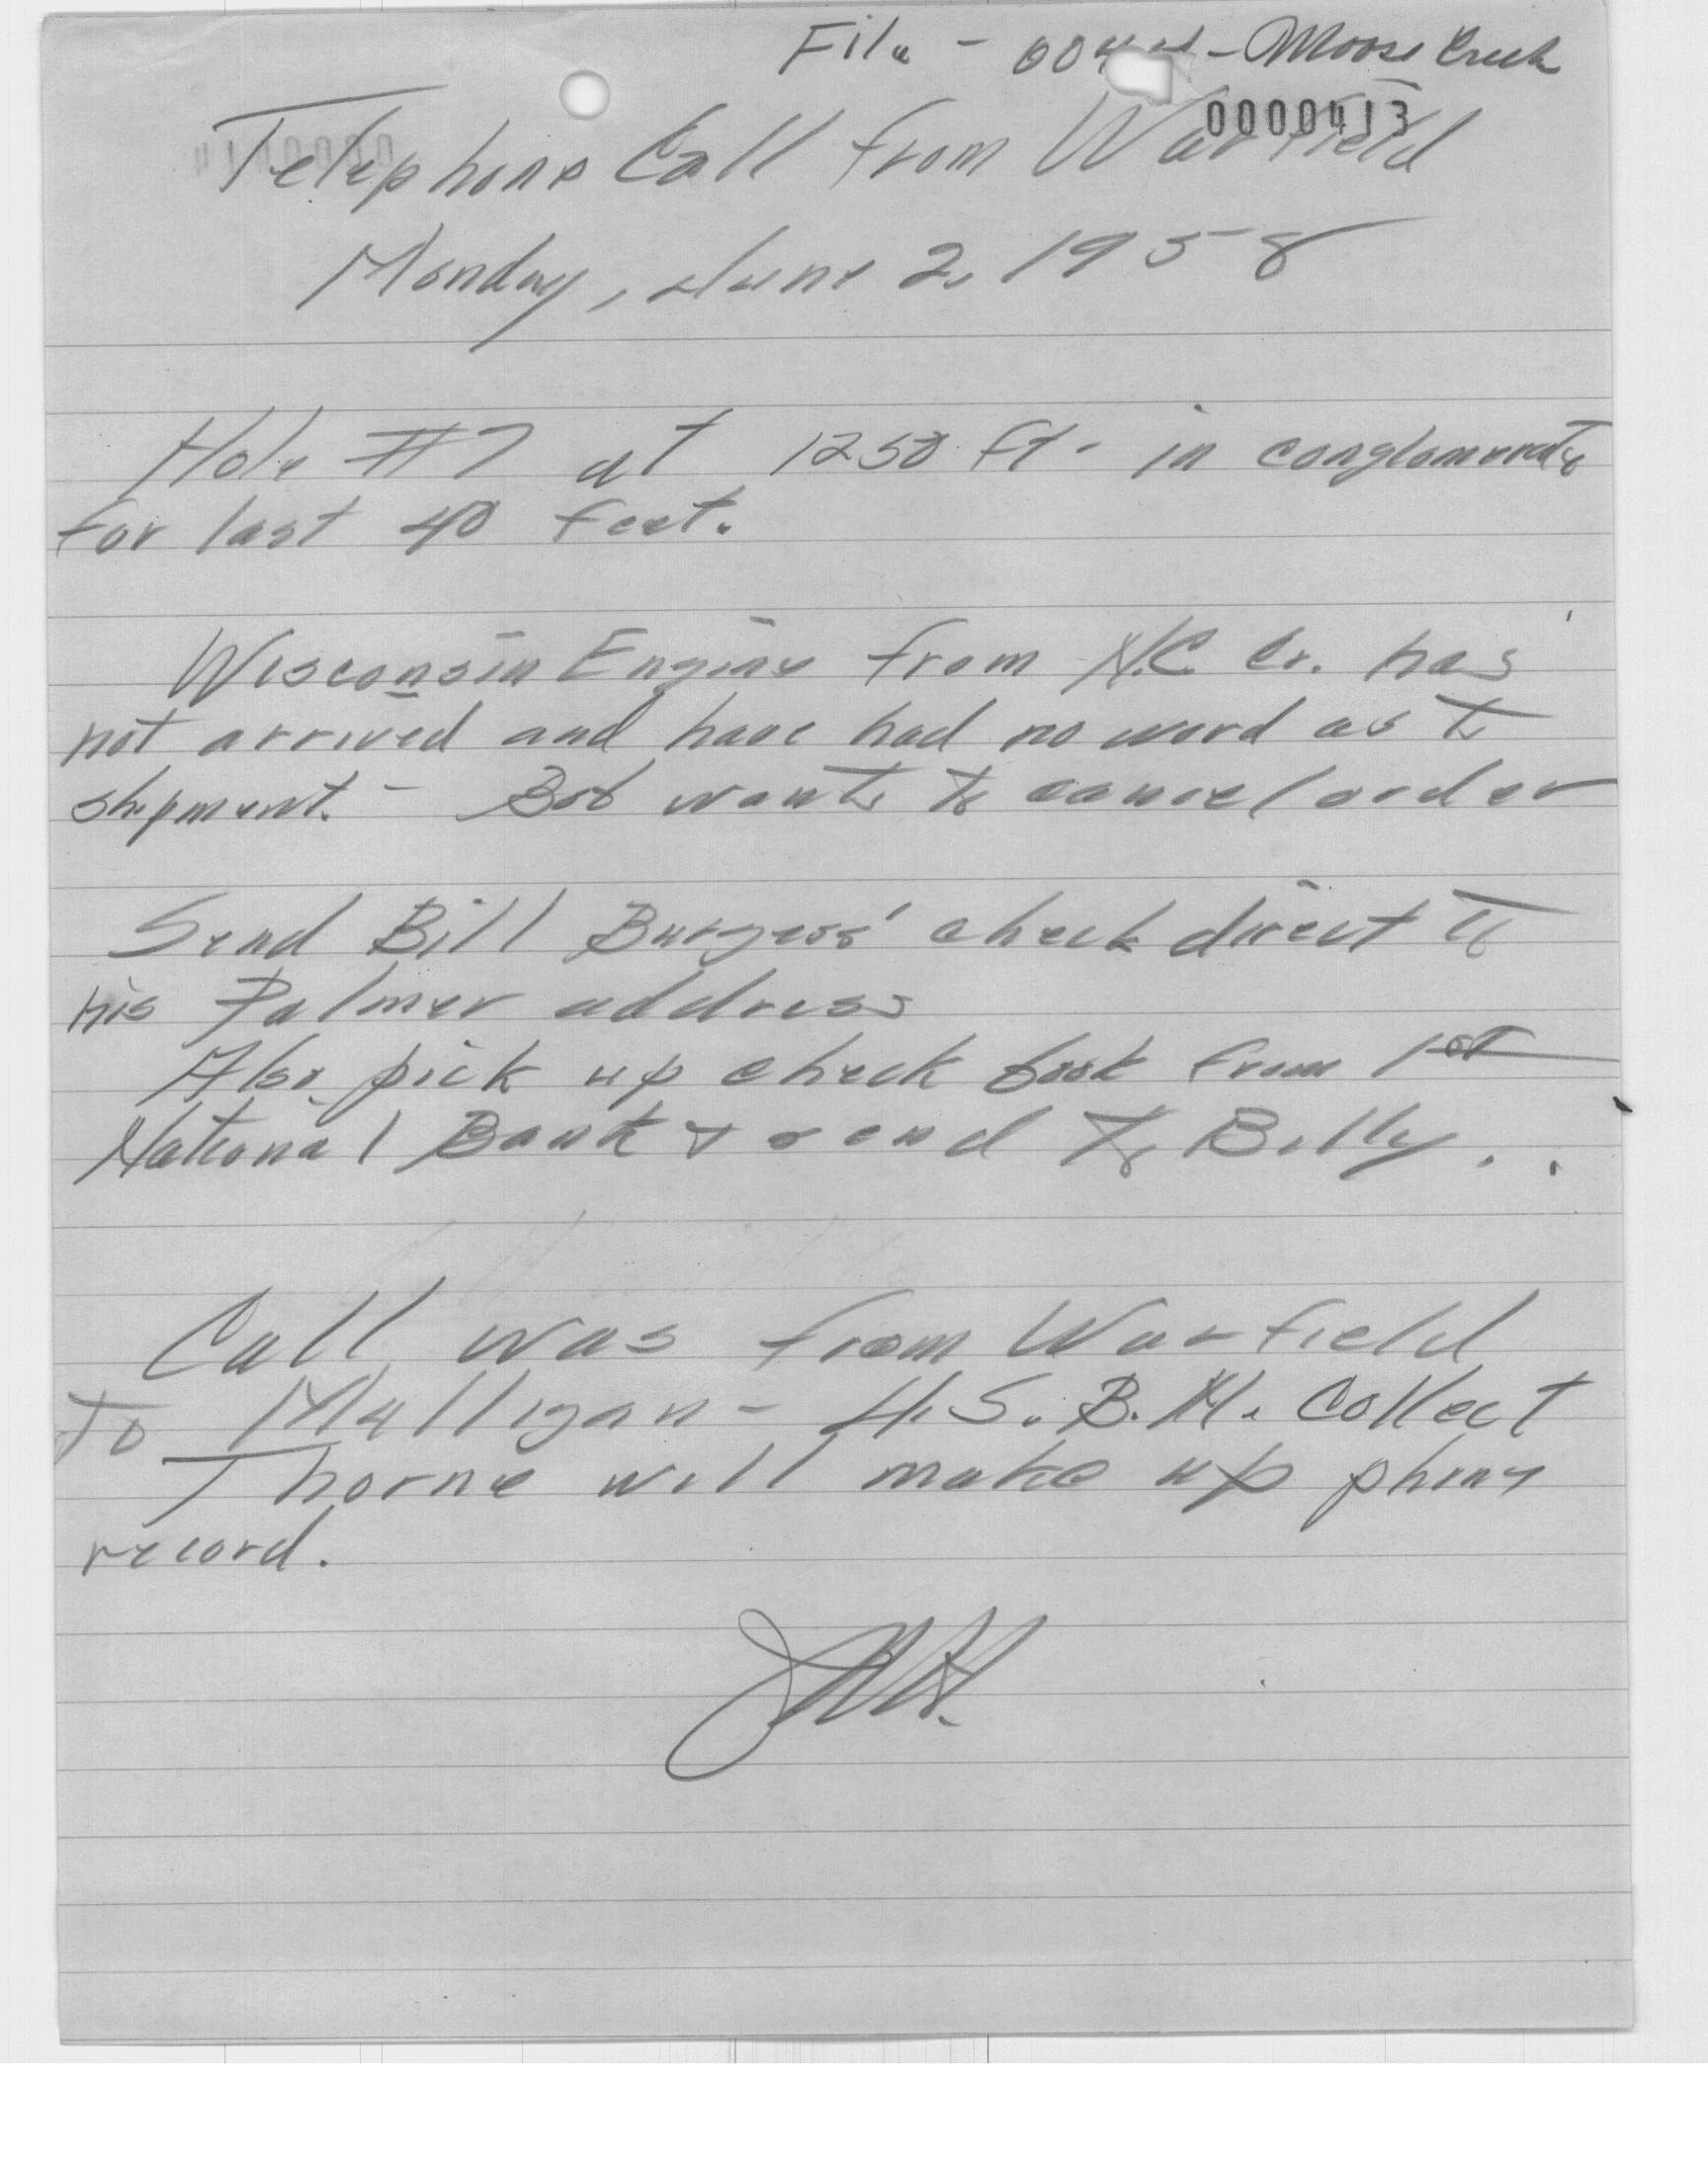 File - Moose Creek
0000413
Telephone Call from Warfield
Monday, June 2, 1958
Hole #7 at 1250 ft. in conglomerate
for last 40 feet.
Wisconsin Engine from N.C. Co. has
not arrived and have had no word as to
shipment. - Bob wants to cancel order
Send Bill Burgess' check direct to
his Palmer address
Also pick up check book from 1st
National Bank & send to Billy.
Call was from Warfield
to Mulligan - U.S.B.M. Collect
Thorne will make up phone
record.